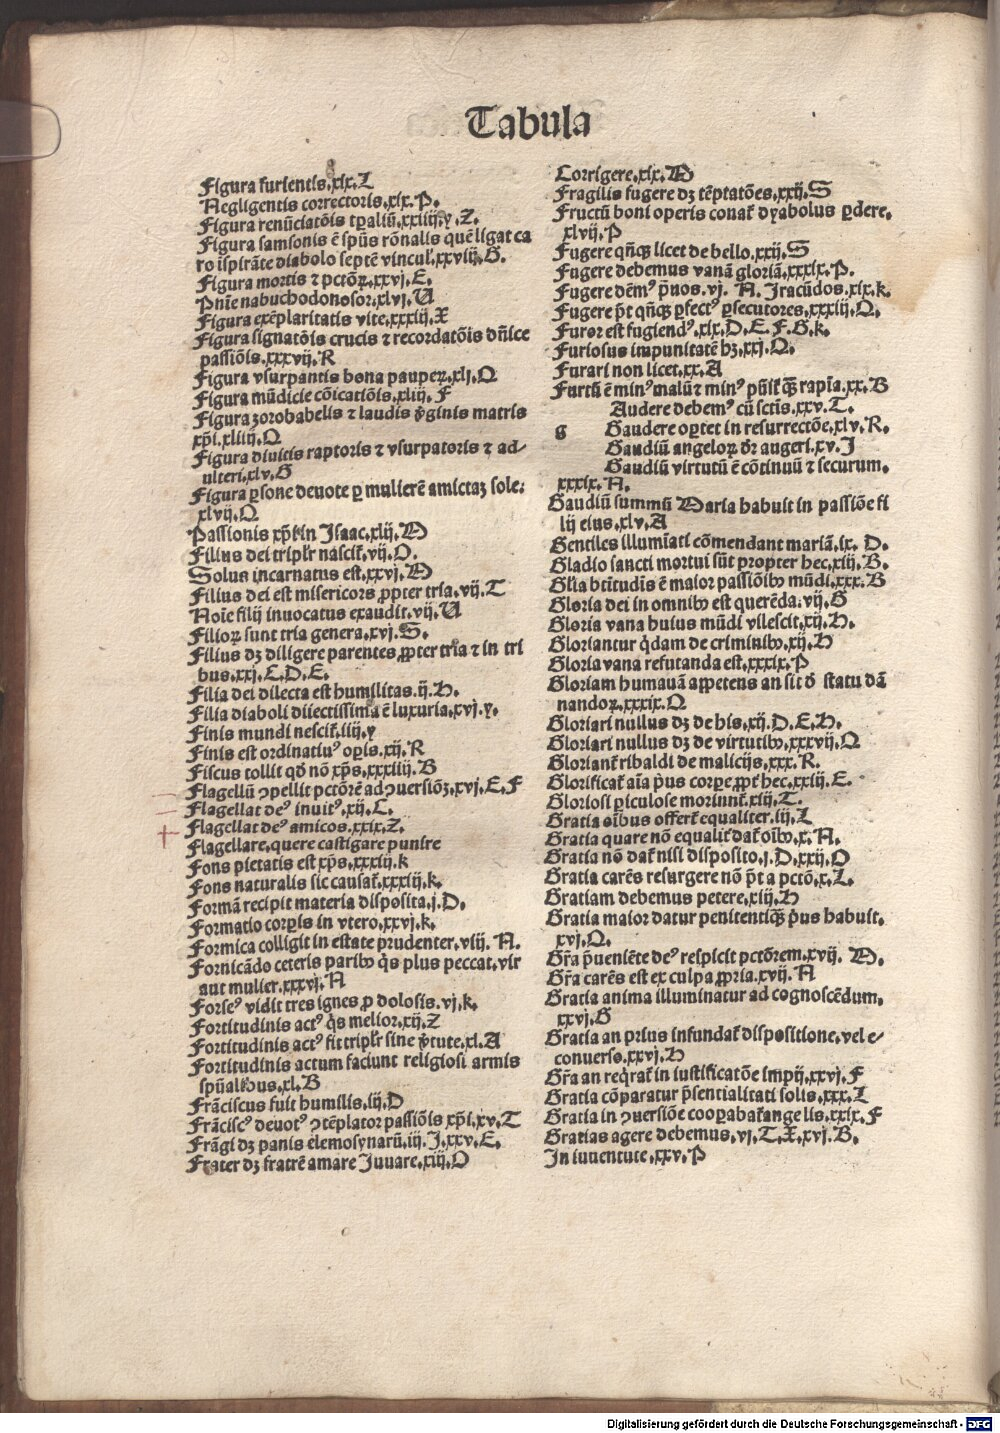 Tabula
Figura furientis.xix.L
Negligentis correctoris.xix.P.
Figura renūciatōis tp̄aliū.xxiiij.y.Z.
Figura samsonis ē sp̄ūs rōnalis quē ligat ca
ro īspirāte diabolo septē vincul'.xxviij.G.
Figura mortis ⁊ pctōꝝ.xxvj.E.
Pn̄ie nabuchodonosor.xlvj.U
Figura exēplaritatis vite.xxxiij.X
Figura signatōis crucis ⁊ recordatōis dn̄ice
passiōis.xxxvij.R
Figura vsurpantis bona paupeꝝ.xlj.Q
Figura mūdicie cōicatiōis.xliij. F
Figura zorobabelis ⁊ laudis v̓ginis matris
xp̄i.xliiij.Q
Figura diuitis raptoris ⁊ vsurpatoris ⁊ ad-
ulteri.xlv.G
Figura ꝑsone deuote ꝑ mulierē amictaꝫ sole.
xlvij.Q
Passionis xp̄i in Isaac.xlij.M
Filius dei triplr̄ nascit̄.vij.O.
Solus incarnatus est.xxvj.M
Filius dei est misericors ꝓpter tria.vij.T
Noīe filij inuocatus exaudit.vij.U
Filioꝝ sunt tria genera.xvj.S.
Filius dꝫ diligere parentes ꝓpter tria ⁊ in tri
bus.xxj.C.D.E.
Filia dei dilecta est humilitas.ij.H.
Filia diaboli diiectissima ē luxuria.xvj.y.
Finis mundi nescit̄.iiij.y
Finis est ordinatiuꝰ oꝑis.xij.R
Fiscus tollit qd̓ nō xp̄s.xxxiiij.B
Flagellū ꝯpellit pctōrē ad ꝯuersiōꝫ.xvj.E.F
Flagellat deꝰ inuitꝰ.xij.C.
Flagellat deꝰ amicos.xxix.Z.
Flagellare.quere castigare punire
Fons pietatis est xp̄s.xxxiij.k
Fons naturalis sic causat̄.xxxiij.k.
Formā recipit materia disposita.j.D.
Formatio corꝑis in vtero.xxvj.k.
Formica colligit in estate prudenter.viij. N.
Fornicādo ceteris paribꝰ q̓s plus peccat.vir
aut mulier.xxxvj.N
Forseꝰ vidit tres ignes ꝓ dolosis.vj.k.
Fortitudinis actꝰ q̓s melior.xij.Z
Fortitudinis actꝰ fit triplr̄ sine v̓tute.xl.A
Fortitudinis actum faciunt religiosi armis
spūalibus.xl.B
Frāciscus fuit humilis.iij.D
Frāciscꝰ deuotꝰ ꝯtēplator passiōis xp̄i.xv.T
Frāgi dꝫ panis elemosynarū.iij.I.xxv.E.
Frater dꝫ fratrē amare Juuare.xiij.O
Corrigere.xix.M
Fragilis fugere dꝫ tēptatōes.xxij.S
Fructū boni operis conat̄ dyabolus ꝑdere.
xlvij.P
Fugere qn̄qꝫ licet de bello.xxij.S
Fugere debemus vanā gloriā.xxxix.P.
Fugere dēmꝰ p̄uos.vj. N. Iracūdos.xix.k.
Fugere p̄t qn̄qꝫ ꝑfectꝰ ꝑsecutores.xxxiij.Q.
Furor est fugiendꝰ.xix.D.E.F.G.k.
Furiosus impunitatē hꝫ.xxj.Q.
Furari non licet.xx.A
Furtū ē minꝰ malū ⁊ minꝰ pūit̄ qꝫ rapīa.xx.B
Audere debemꝰ cū sctīs.xxv.T.
g Gaudere oꝑtet in resurrectōe.xlv.R.
Gaudiū angeloꝝ dr̄ augeri.xv.I
Gaudiū virtutū ē cōtinuū ⁊ securum.
xxxix.N.
Gaudiū summū Maria habuit in passiōe fi
lij eius.xlv.A
Gentiles illumīati cōmendant mariā.ix. D.
Gladio sancti mortui sūt propter hec.xiij.B.
Glīa btītudīs ē maior passiōibꝰ mūdi.xxx.B
Gloria dei in omnibꝰ est querēda.vij.G
Gloria vana huius mūdi vilescit.xij.H.
Gloriantur q̓dam de criminibꝰ.xij.H
Gloria vana refutanda est.xxxix.P
Gloriam humauā appetens an sit d̓ statu dā
nandoꝝ.xxxix.Q
Gloriari nullus dꝫ de his.xij.D.E.H.
Gloriari nullus dꝫ de virtutibꝰ.xxxvij.Q
Gloriant̄ ribaldi de malicijs.xxx.R.
Glorificat̄ aīa p̓us corꝑe ꝓpt̄ hec.xxiij.E.
Gloriosi ꝑiculose moriunt̄.xiij.T.
Gratia oībus offert̄ equaliter.iij.L
Gratia quare nō equalit̄ dat̄ oībꝰ.x.N.
Gratia nō dat̄ nisi disposito.j.D.xxij.O
Gratia carēs resurgere nō p̄t a pctō.x.L.
Gratiam debemus petere.xiij.H
Gratia maior datur penitentiqꝫ p̓us habuit.
xvj.Q.
Gr̄a p̄ueniēte deꝰ respicit pctōrem.xvij. M.
Gr̄a carēs est ex culpa ꝓpria.xvij.N
Gratia anima illuminatur ad cognoscēdum.
xxvj.G
Gratia an prius infundat̄ dispositione.vel e-
conuerso.xxvj.H
Gr̄a an reqrat̄ in iustificatōe impij.xxvj.F
Gratia cōparatur p̄sentialitati solis.xxx.L
Gratia in ꝯuersiōe cooꝑabat̄ ange lis.xxix.F
Gratias agere debemus.vj.T.X.xvj.B.
In iuuentute.xxv.P
Digitalisierung gefördert durch die Deutsche Forschungsgemeinschaft - DFG